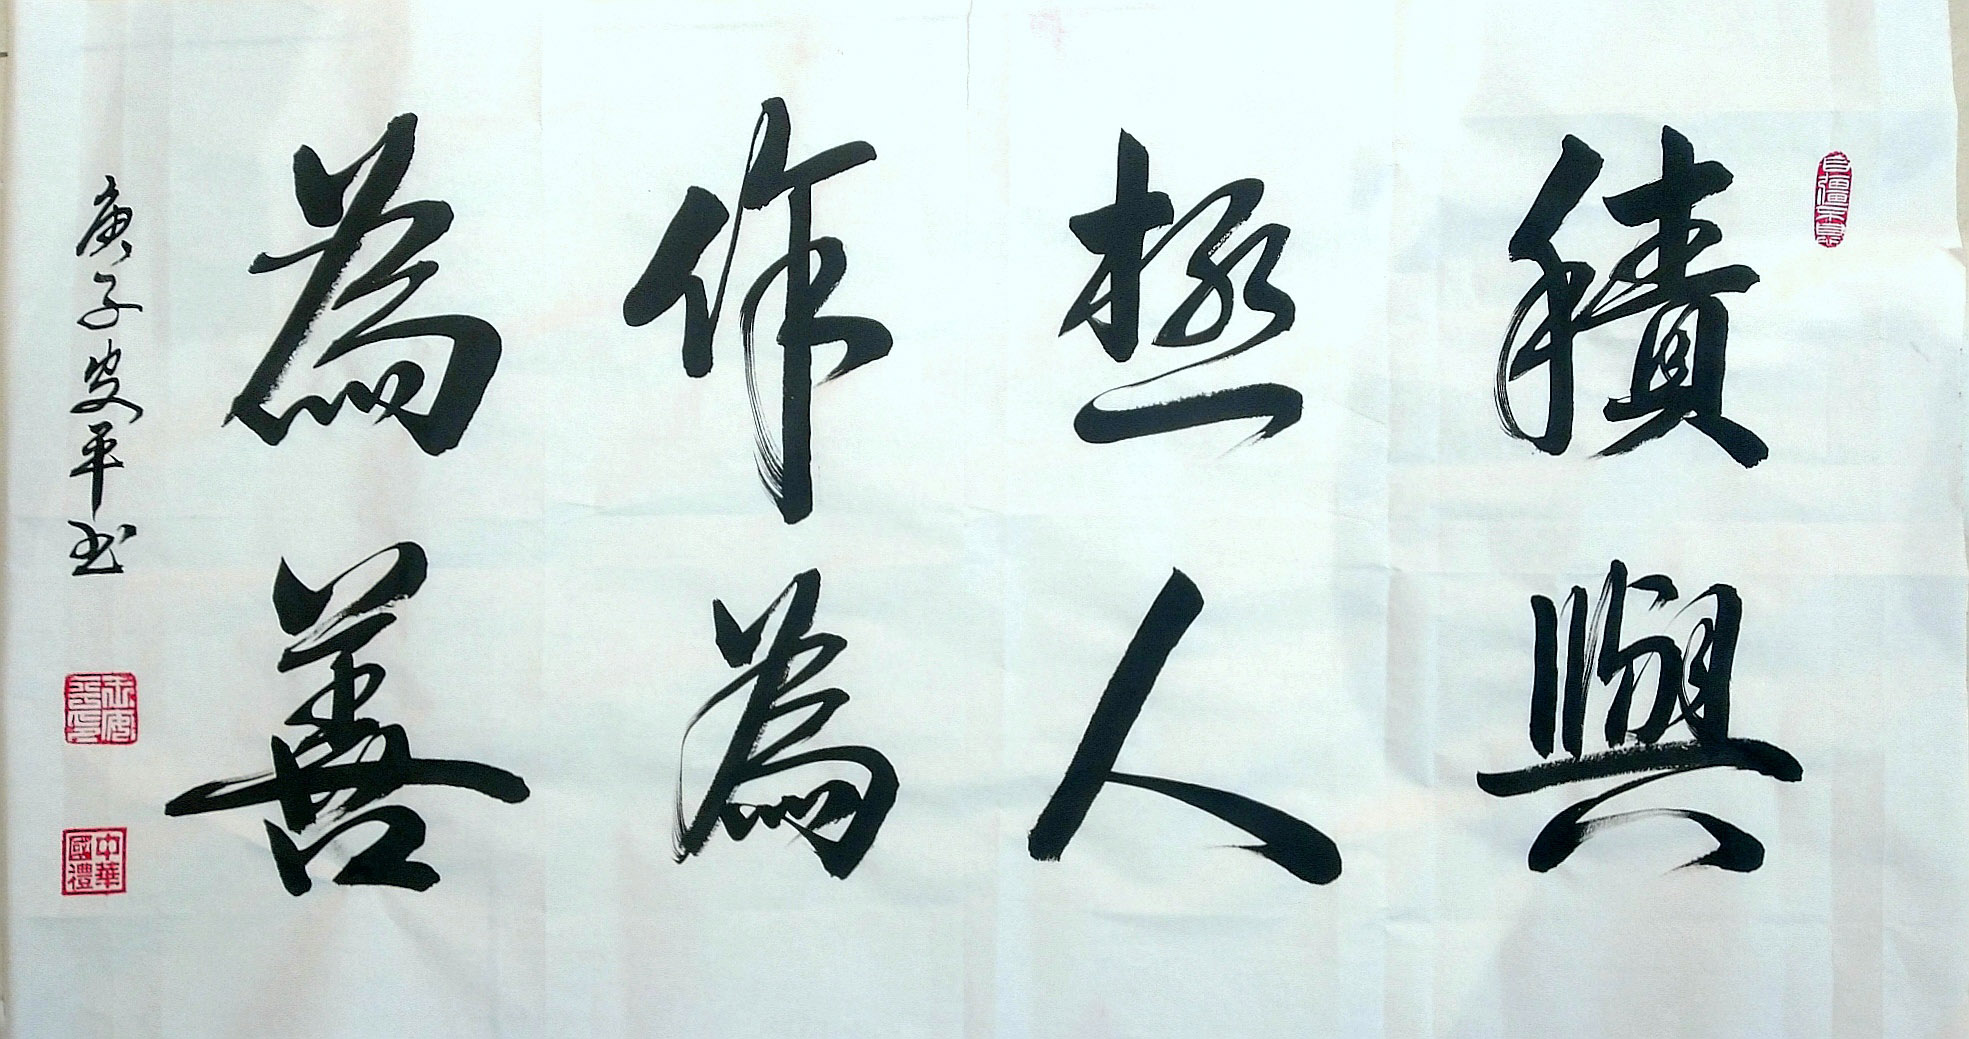 積與
極人
作為
為善
庚子安平书
自彊不息
中華國禮